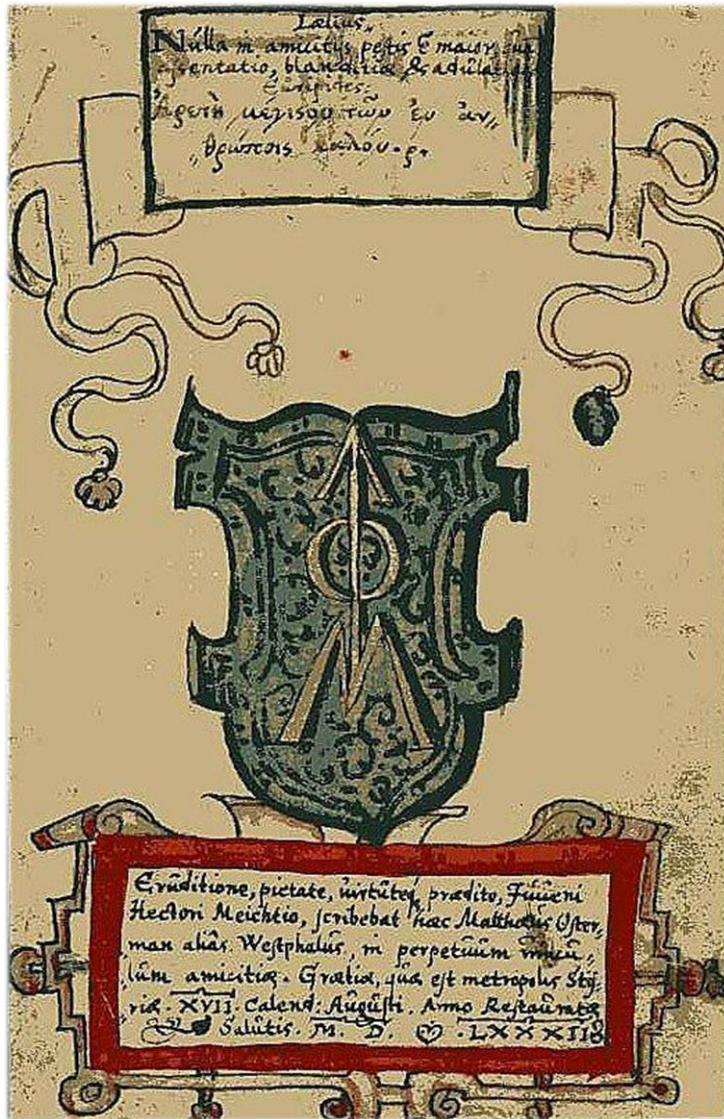 Lælius,,
Nulla in amicitijs pestis Ê maior, quã
assentatio, blanditia & adulatio
Euripides:
Ἀρετὴ μέγιϛον τῶν ἐν ἀν,,
θρώποις καλόν.
Eruditione, pietate, virtuteq, prædito, Juveni
Hectori Meichtio, scribebat hæc Matthæus Oster,,
man aliâs Westphalus, in perpetuum vincu,,
lum amicitiæ. Grætiæ, quæ est metropolis Sty,,
riæ. XVII. Calend: Augusti. Anno Restauratæ
Salutis. M. D. LXXXII